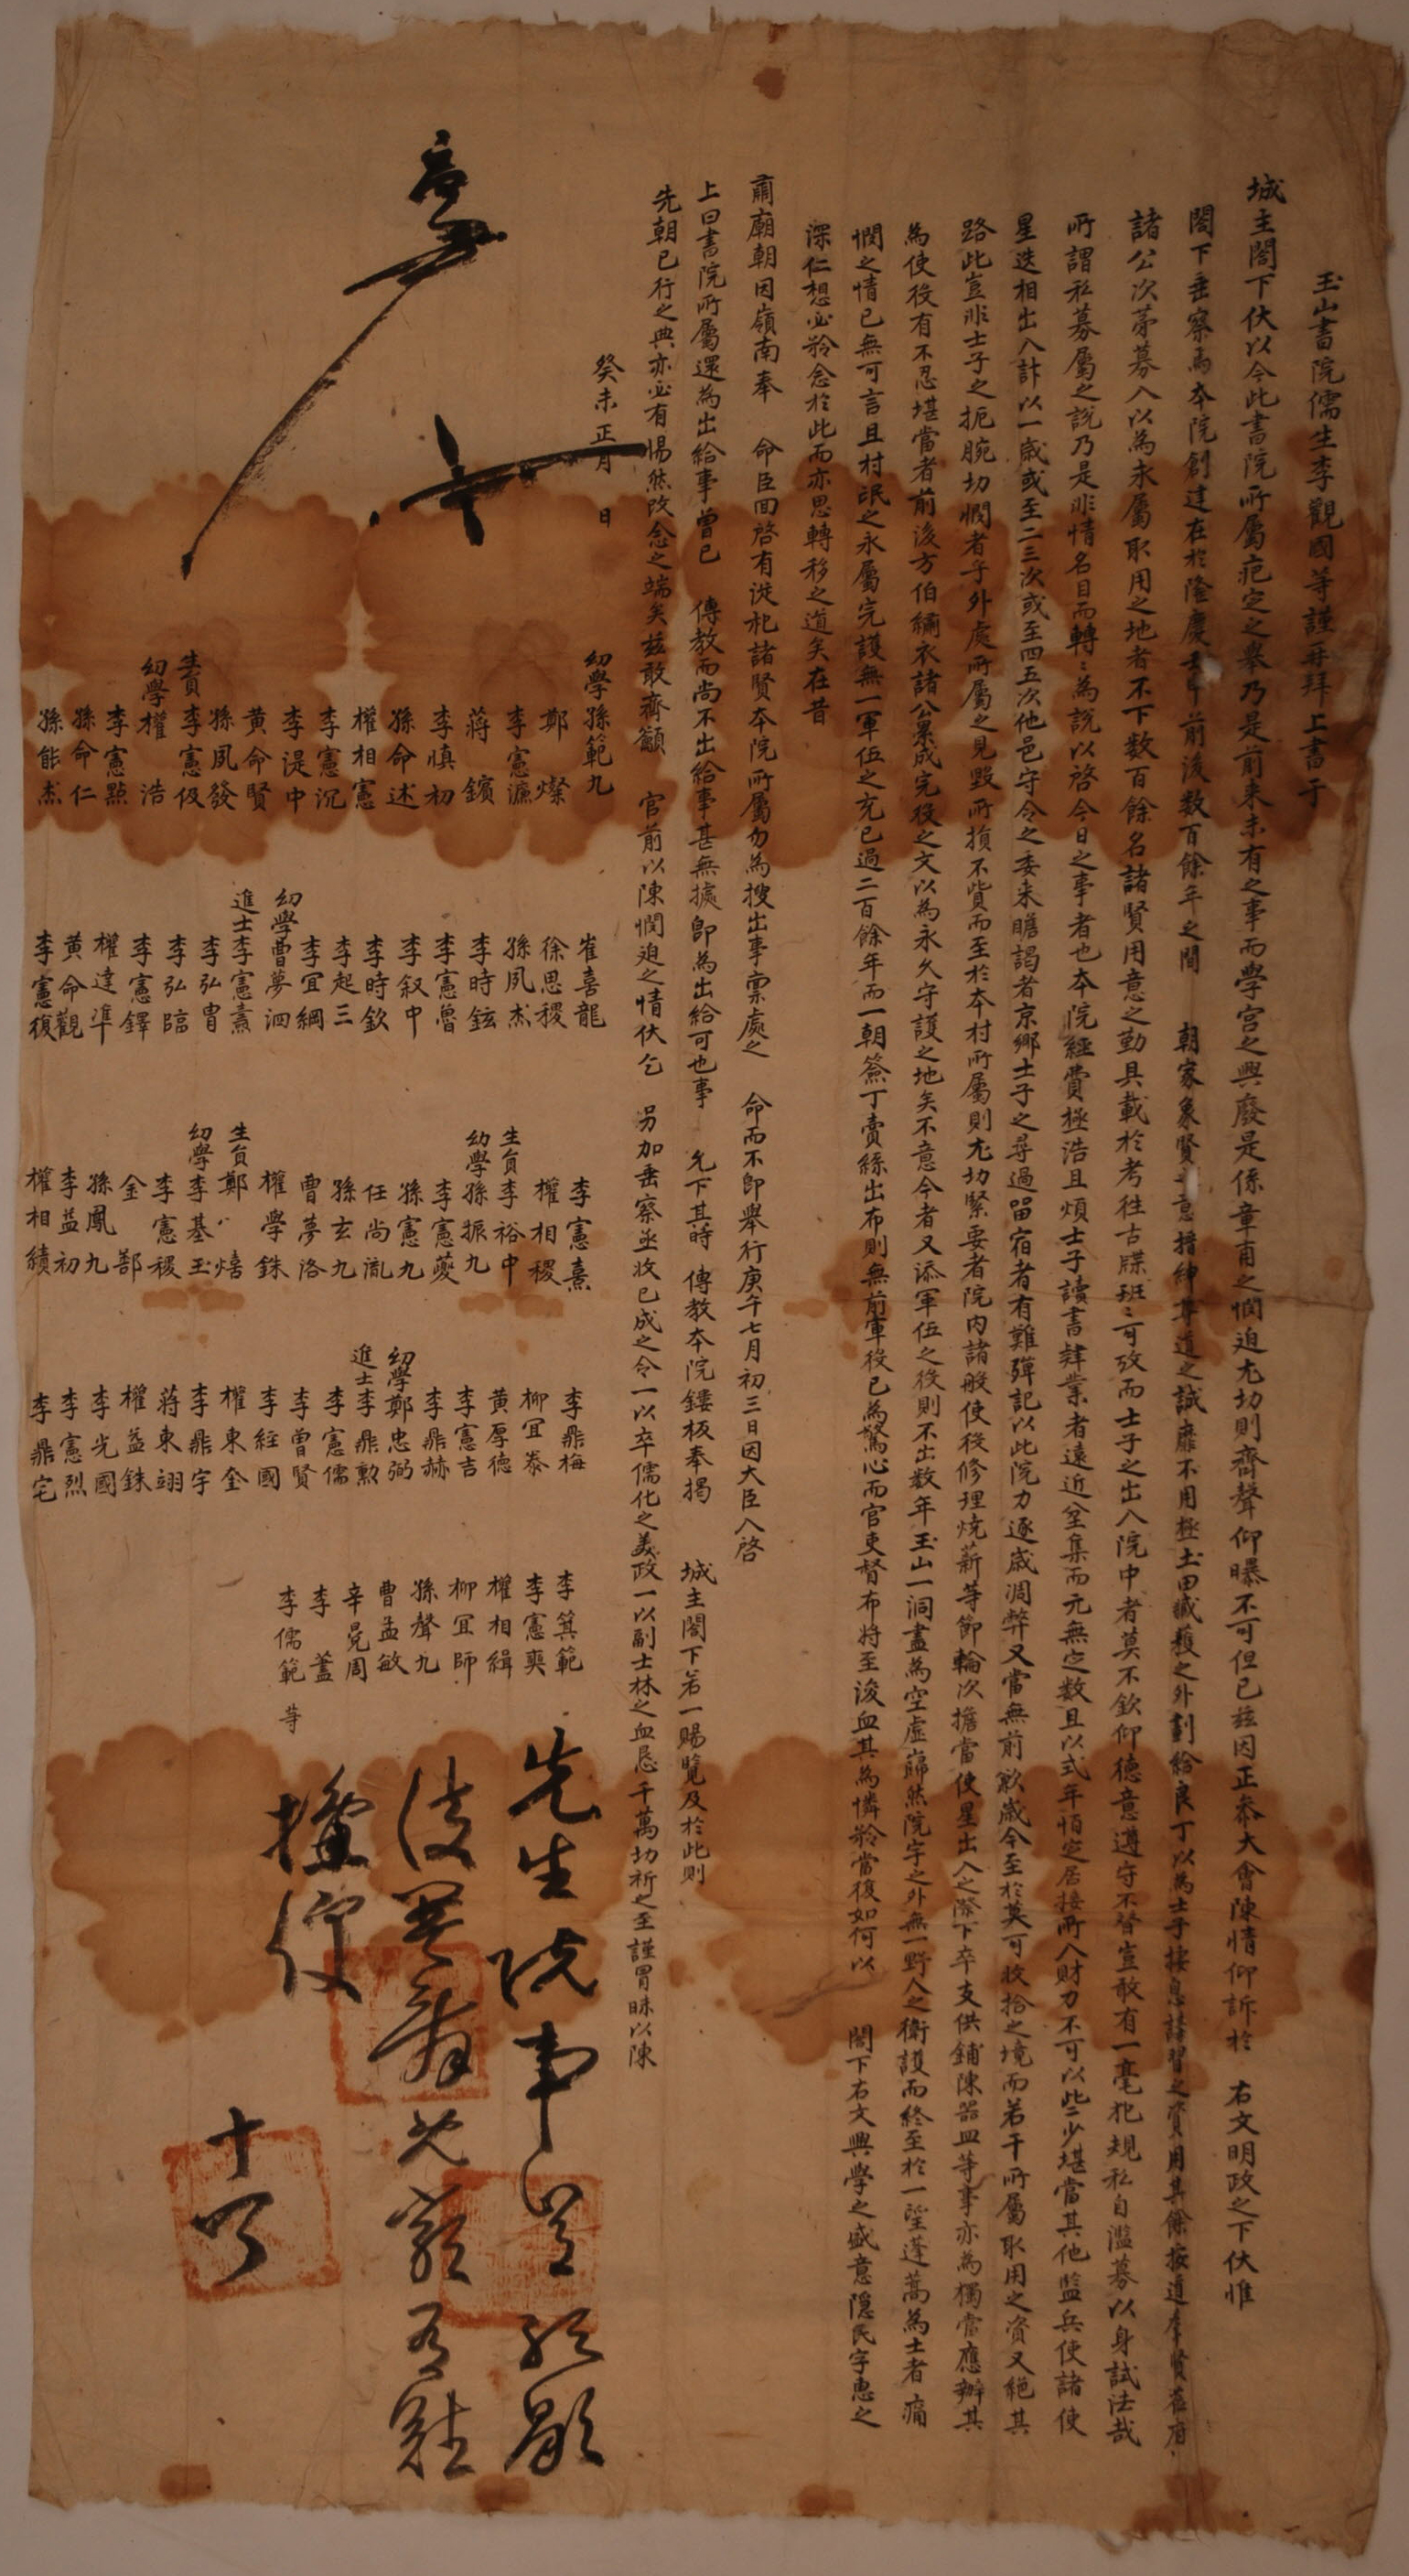 玉山書院儒生李觀國等謹再拜上書于
城主閤下伏以今此書院所屬疤定之擧乃是前來未有之事而學宮之興廢是係章甫之憫迫尤切則齊聲仰曝不可但已玆因正參大會陳情仰訴於 右文明政之下伏惟
閤下垂察焉本院創建在於隆慶壬申前後數百餘年之間 朝家象賢之意搢紳尊道之誠靡不用極土田臧獲之外劃給良丁以爲士子接息講習之資用其餘按道奉賢莅府
諸公次第募入以爲未屬取用之地者不下数百餘名諸賢用意之勤具載於考徃古牒班〻可攷而士子之出入院中者莫不欽仰德意遵守不替豈敢有一毫犯規私自濫募以身試法哉
所謂私募屬之說乃是非情名目而轉〻爲說以啓今日之事者也本院經費極浩且煩士子讀書肄業者遠近坌集而元無定数且以式年恒定居接所入財力不可以些少堪當其他監兵使諸使
星迭相出入計以一歲或至二三次或至四五次他邑守令之委來瞻謁者京鄕士子之尋過留宿者有難殫記以此院力逐歲凋弊又當無前歉歲今至於莫可收拾之境而若干所屬取用之資又絶其
路此豈非士子之扼腕切憫者乎外處所屬之見毁所損不貲而至於本村所屬則尤切緊要者院內諸般使役修理燒薪等節輪次擔當使星出入之際下卒支供鋪陳器皿等事亦爲獨當應辦其
爲使役有不忍堪當者前後方伯繡衣諸公纍成完役之文以爲永久守護之地矣不意今者又添軍伍之役則不出数年玉山一洞盡爲空虛巋然院宇之外無一野人之衛護而終至於一望蓬蒿爲士者痛
憫之情已無可言且村氓之永屬完護無一軍伍之充已過二百餘年而一朝簽丁賣絲出布則無前軍役已爲驚心而官吏督布將至浚血其爲憐矜當復如何以 閤下右文興學之盛意隱民字惠之
深仁想必矜念於此而亦思轉移之道矣在昔
肅廟朝因嶺南奉 命臣回啓有從祀諸賢本院所屬勿爲搜出事稟處之 命而不卽擧行庚午七月初三日因大臣入啓
上曰書院所屬還爲出給事曾已 傳敎而尙不出給事甚無據卽爲出給可也事 允下其時 傳敎本院鏤板奉揭 城主閤下若一賜覽及於此則
先朝已行之典亦必有惕然改念之端矣玆敢齊籲 官前以陳憫迫之情伏乞 另加垂察亟收已成之令一以卒儒化之美政一以副士林之血懇千萬切祈之至謹冒昧以陳
癸未正月 日
幼學孫範九 鄭 燦 李憲濂 蔣 鑌 李愼初 孫命述 權相憲 李憲沉 李湜中 黃命賢 孫夙發 生員李憲伋 幼學權 浩 李憲點 孫命仁 孫能杰
崔喜龍 徐思稷 孫夙杰 李時鉉 李憲魯 李叙中 李時欽 李起三 李宜綱 幼學曺夢泗 進士李憲燾 李弘胄 李弘臨 李憲鐸 權達準 黃命觀 李憲復
李憲熹 權相稷 生員李裕中 幼學孫振九 李憲夔 孫憲九 任尙胤 孫玄九 曺夢洛 權學銖 生員鄭 熺 幼學李基玉 李憲稷 金 郜 孫鳳九 李益初 權相績
李鼎梅 柳宜泰 黃厚德 李憲吉 李鼎赫 幼學鄭忠弼 進士李鼎勲 李憲儒 李曾賢 李經國 權東奎 李鼎宇 蔣東翊 權益銖 李光國 李憲烈 李鼎宅
李箕範 李憲奭 權相緝 柳宜師 孫聲九 曺孟敏 辛晃周 李 藎 李儒範 等
先生院事
十四